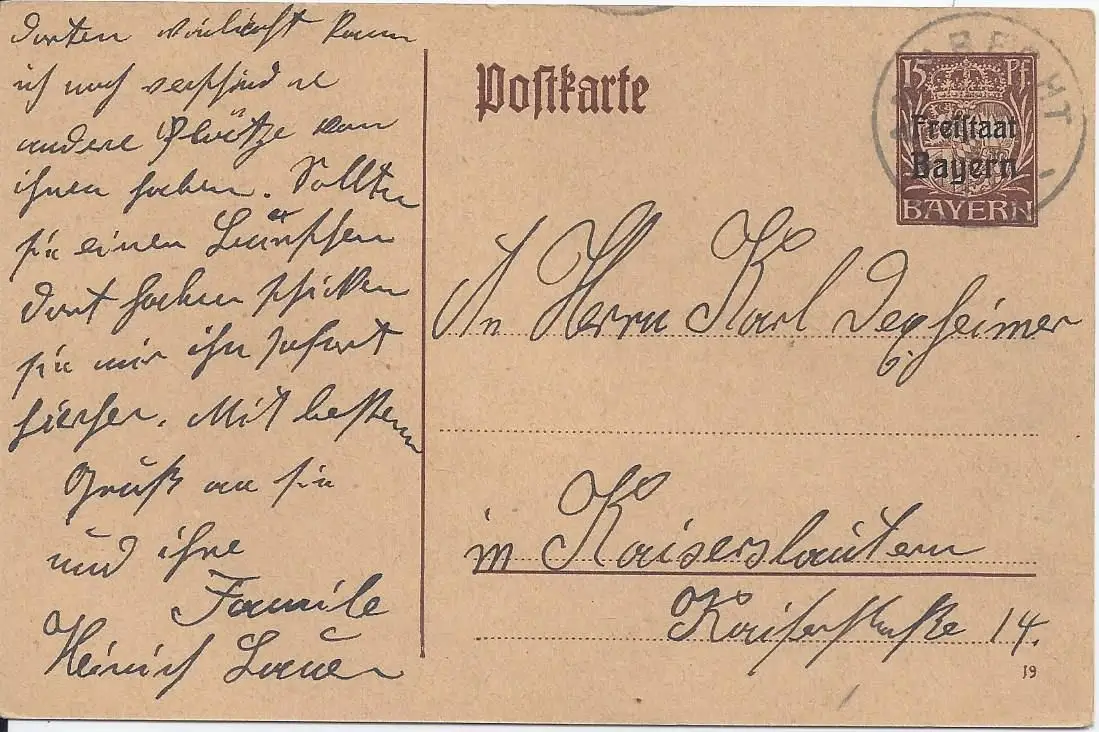 dorten vieleicht kann
ich noch verschiedene
andere Plätze von
ihnen haben. Sollten
sie einen
dort haben schicken
sie mir ihn sofort
hierher. Mit bestem
Gruß an sie
und ihre
Familie
Heinrich Lauer
Postkarte
15 Pf
Freistaat
Bayern
BAYERN
An Herrn Karl Dexheimer
in Kaiserslautern
Kaiserstraße 14.
19